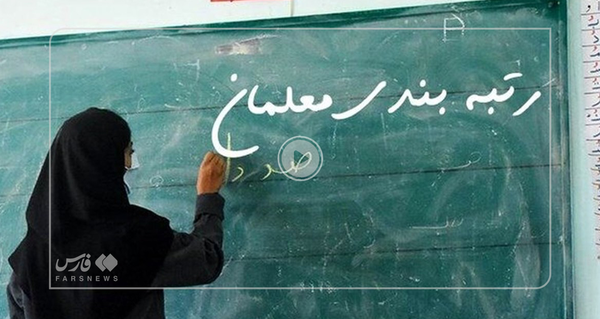 رتبه بندی معلمان
صد دا
فارس
FARSNEWS